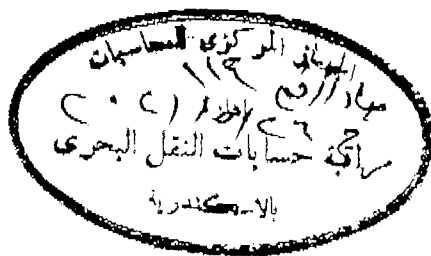 الجهاز المركزى للمحاسبات
صادر رقم ١١٩
٢٠٢١
مراقبة حسابات النقل البحرى
بالاسكندرية